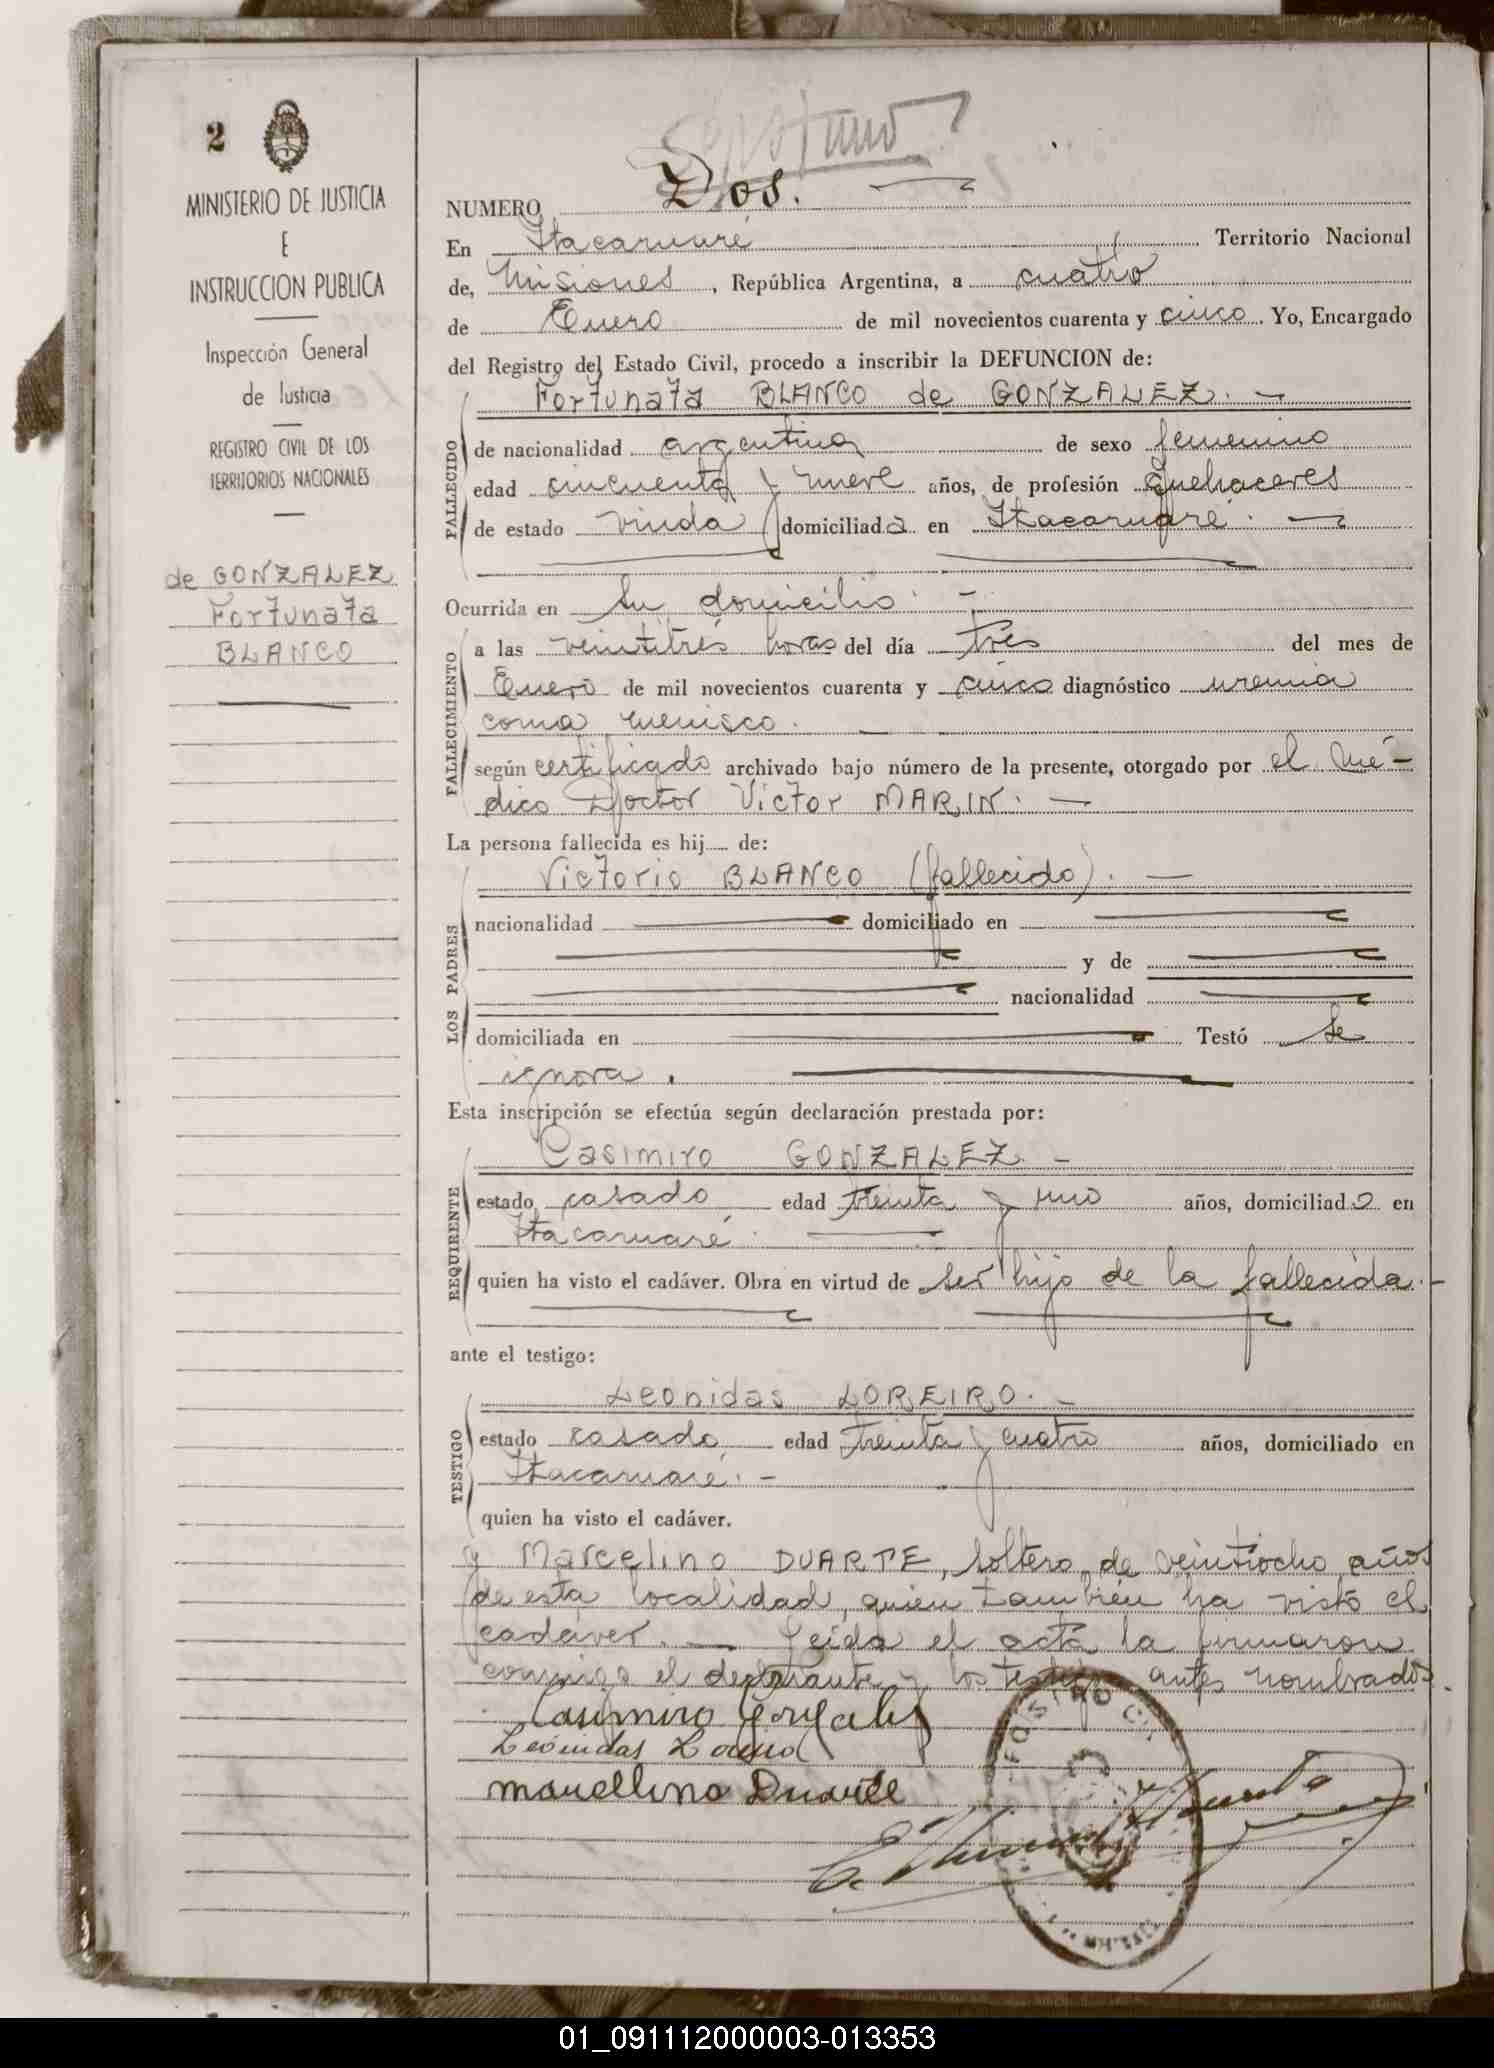 2
MINISTERIO DE JUSTICIA
E
INSTRUCCION PUBLICA
Inspección General
de Justicia
REGISTRO CIVIL DE LOS
TERRITORIOS NACIONALES
de GONZALEZ
Fortunata
BLANCO
NUMERO Dos.
En Itacaruaré Territorio Nacional
de, Misiones, República Argentina, a cuatro
de Enero de mil novecientos cuarenta y cinco. Yo, Encargado
del Registro del Estado Civil, procedo a inscribir la DEFUNCION de:
Fortunata BLANCO de GONZALEZ. -
FALLECIDO
de nacionalidad argentina de sexo femenino
edad cincuenta y nueve años, de profesión Quehaceres
de estado viuda domiciliada en Itacaruaré. -
Ocurrida en su domicilio. -
FALLECIMIENTO
a las veintitrés horas del día tres del mes de
Enero de mil novecientos cuarenta y cinco diagnóstico uremia
coma
según certificado archivado bajo número de la presente, otorgado por el mé-
dico Doctor Victor MARIN. -
La persona fallecida es hij de:
LOS PADRES
Victorio BLANCO (fallecido). -
nacionalidad domiciliado en
y de
nacionalidad
domiciliada en Testó Se
ignora.
Esta inscripción se efectúa según declaración prestada por:
REQUIRENTE
Casimiro GONZALEZ. -
estado casado edad treinta y uno años, domiciliado en
Itacaruaré.
quien ha visto el cadáver. Obra en virtud de ser hijo de la fallecida. -
ante el testigo:
TESTIGO
Leonidas LOREIRO. -
estado casado edad treinta y cuatro años, domiciliado en
Itacaruaré. -
quien ha visto el cadáver.
y Marcelino DUARTE, soltero, de veintiocho años
de esta localidad, quien también ha visto el
cadáver. - Leída el acta la firmaron
conmigo el declarante y los testigos antes nombrados.
Casimiro Gonzalez
Leónidas Loreiro
Marcellino Duarte
01_091112000003-013353